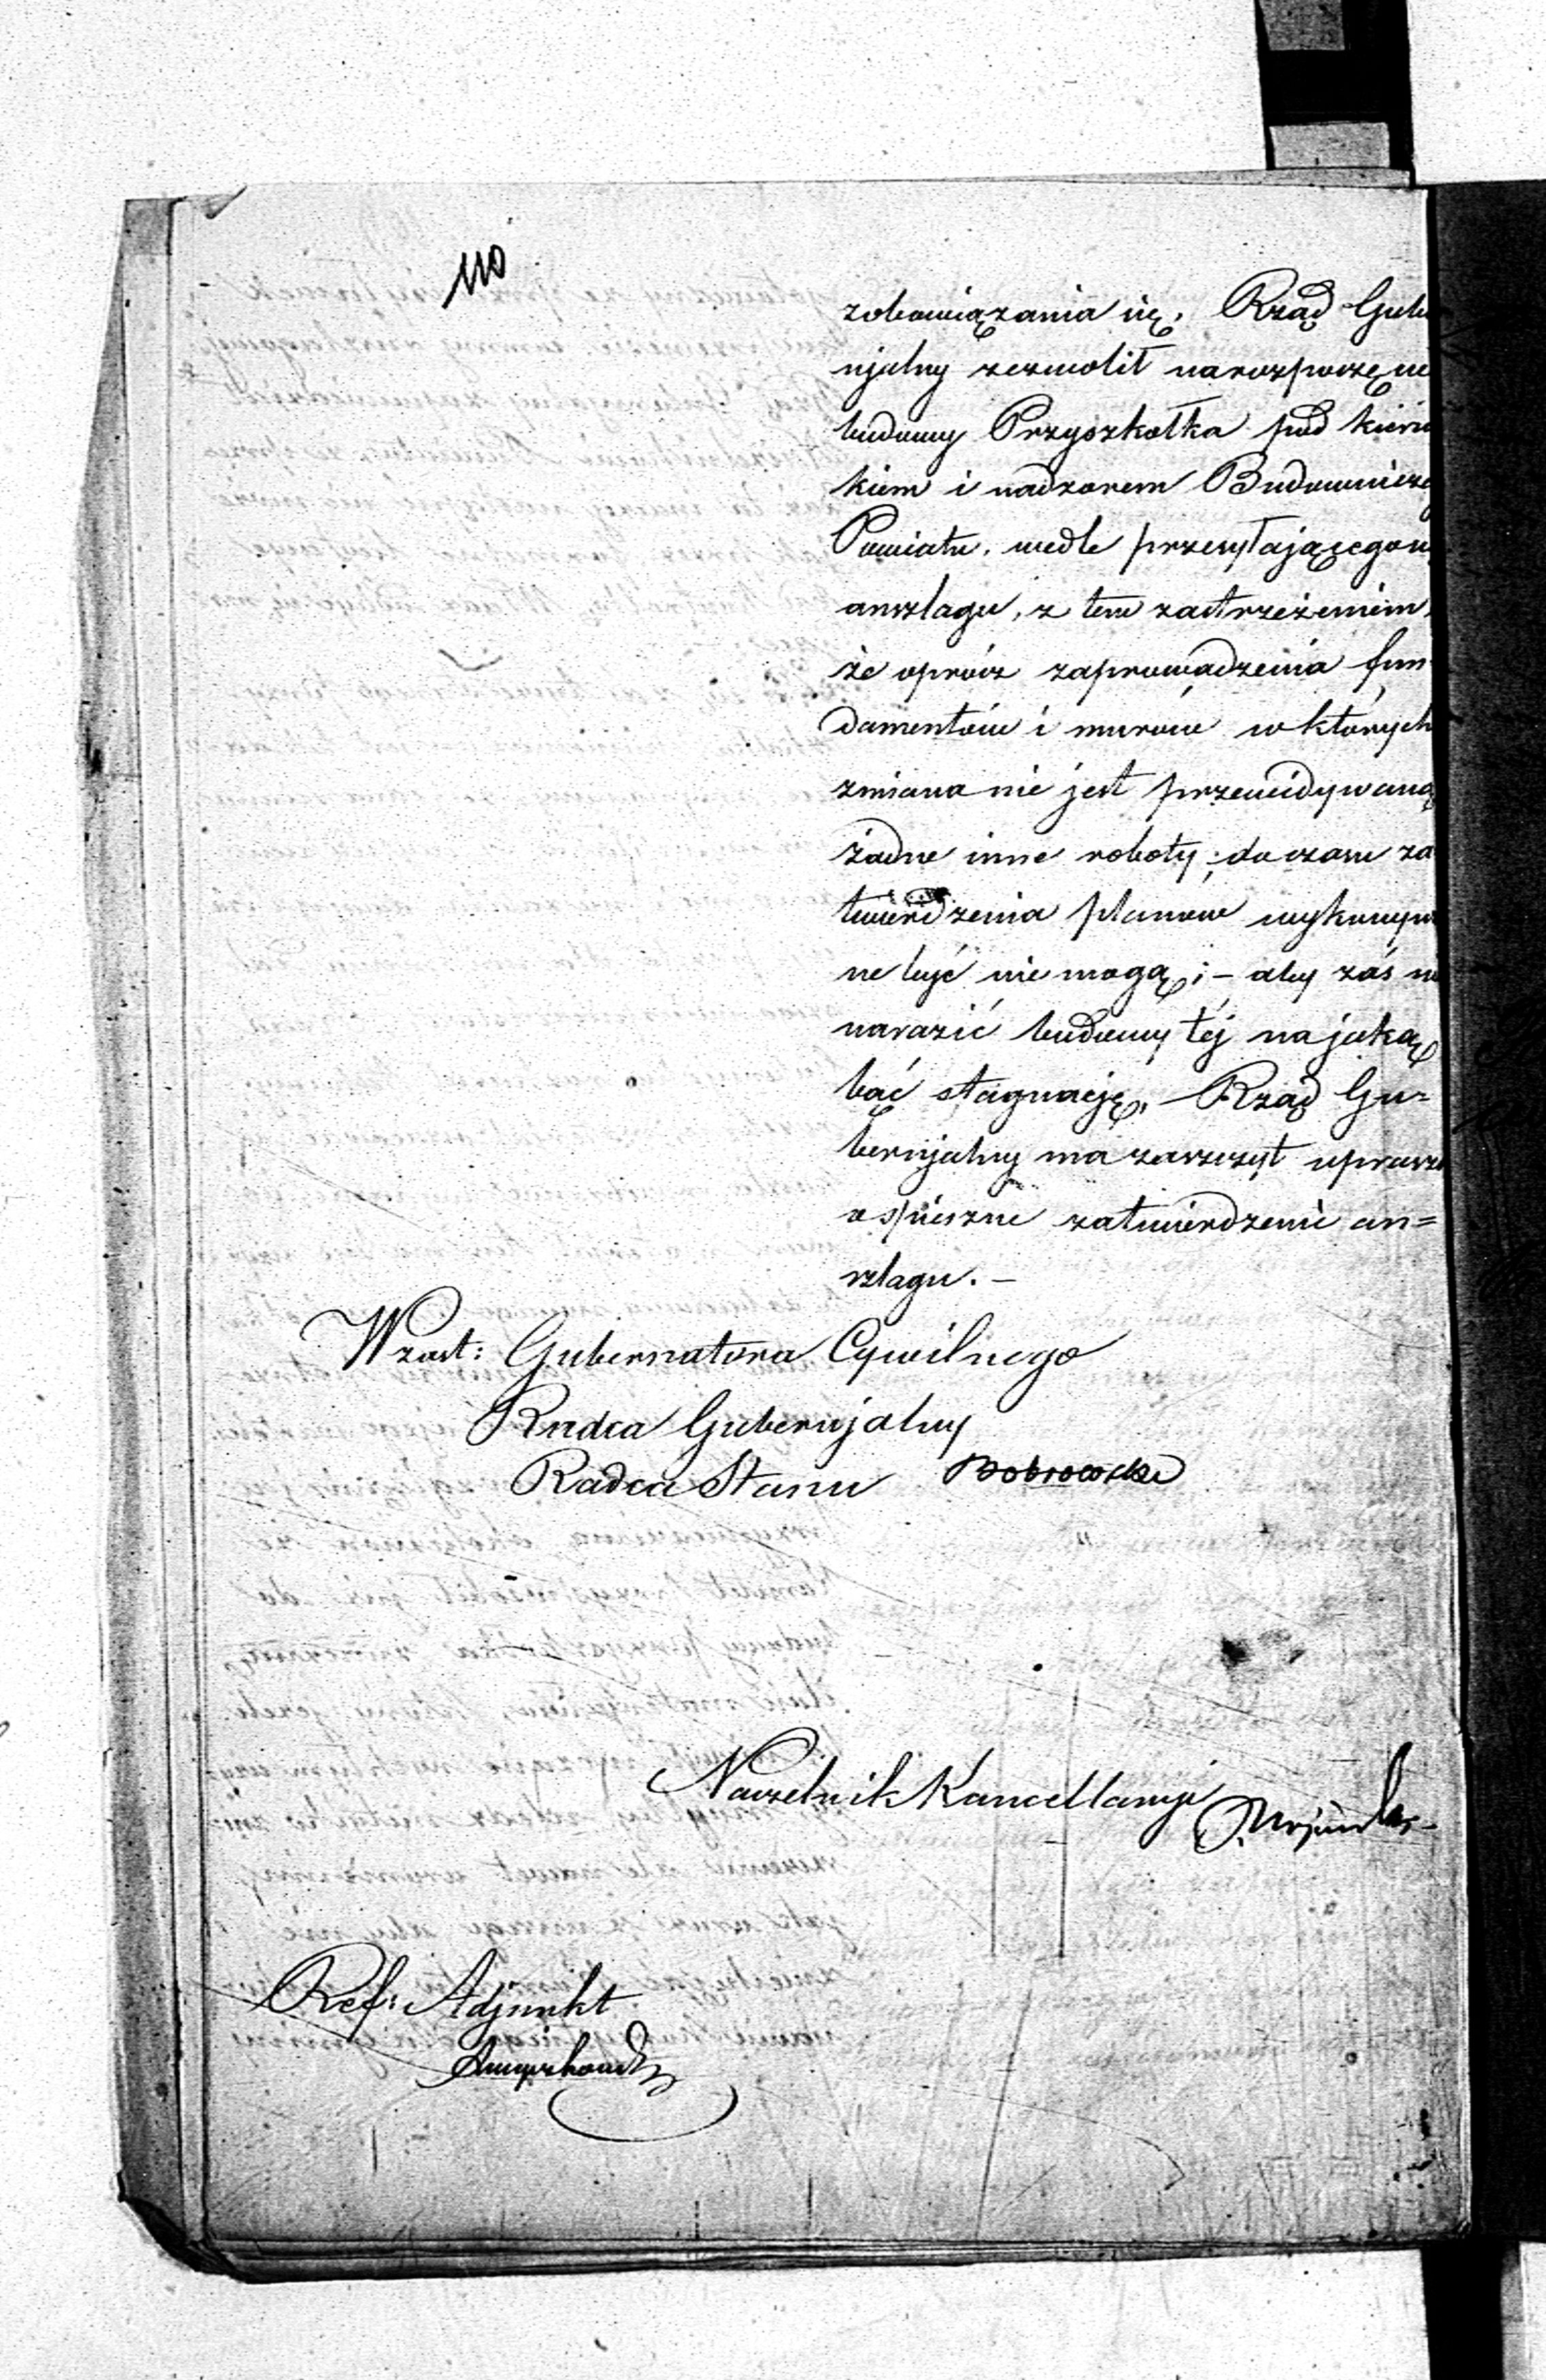 110
zobowiązania się. Rząd Guber
njalny zezwolił na rozpoczęcie
budowy Przyszkołka pod kierun
kiem i nadzorem Budowniczego
Powiatu, wedle przesyłającego się
anszlagu, z tem zastrzeżeniem,
że oprócz zaprowadzenia fun
damentów i murów w których
zmiana nie jest przewidywaną
żadne inne roboty, do czasu za
twierdzenia planów wykonywa
ne być nie mogą; – aby zaś nie
narazić budowy téj na jaką
bąć stagnację, – Rząd Gu=
bernjalny ma zaszczyt uprasza
o spieszne zatwierdzenie an=
szlagu. –
W zast: Gubernatora Cywilnego
Radca Gubernjalny
Radca Stanu Bobrowski
Naczelnik Kancellaryi
Ref: Adjunkt